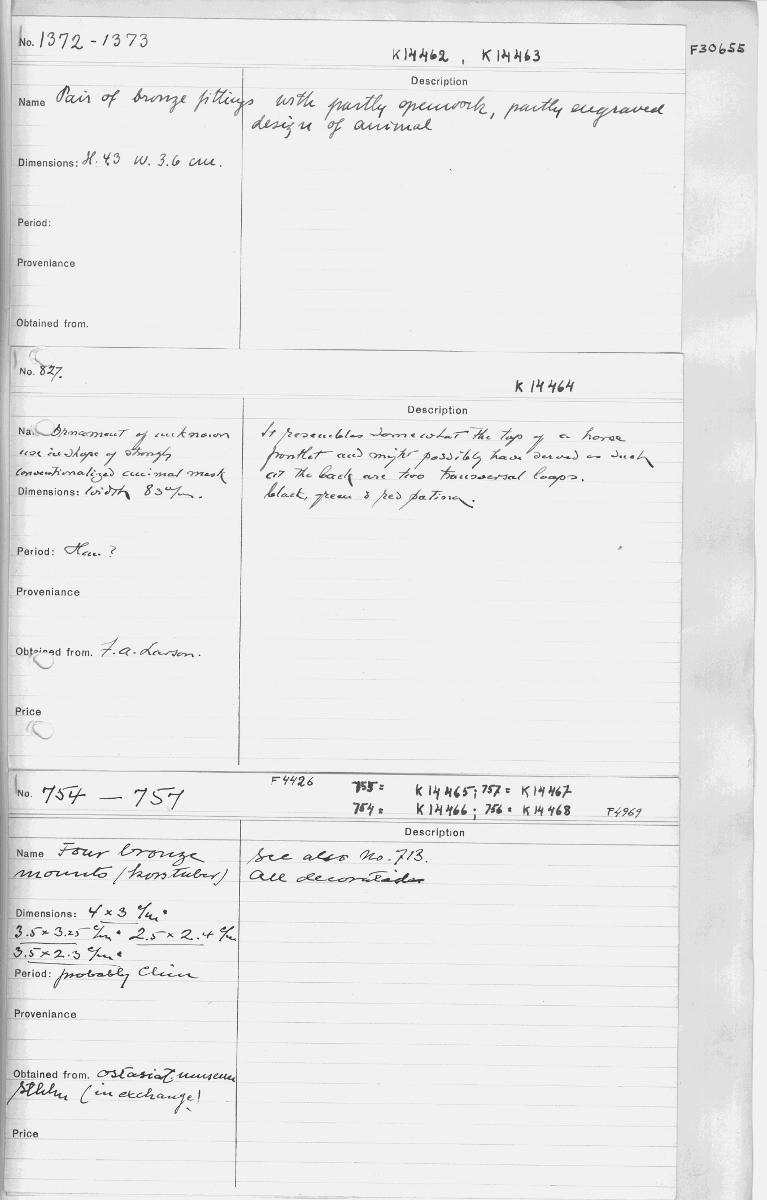 No. 1372 - 1373
K14462, K14463
F30655
Description
Name Pair of bronze fittings with partly openwork, partly engraved
design of animal
Dimensions: H. 4.3 W. 3.6 cm.
Period:
Proveniance
Obtained from.
No. 827.
K 14464
Description
Ornament of unknown
use in shape of strongly
conventionalized animal mask
Dimensions: width 83 m/m.
It resembles somewhat the top of a horse
frontlet and might possibly have served as such
at the back are two transversal loops.
black, green & red patina.
Period: Han ?
Proveniance
Obtained from. F. A. Larson.
Price
F4426
755 = K14465; 757 = K14467
No. 754 — 757
754 = K14466; 756 = K14468
F4969
Description
Name Four bronze
mounts (korstuber)
See also No. 713.
All
Dimensions: 4 x 3 c/m.
3.5 x 3.25 c/m. 2.5 x 2.4 c/m
3.5 x 2.3 c/m.
Period: probably Chin
Proveniance
Obtained from. ostasiat. museum
Sthlm (in exchange)
Price